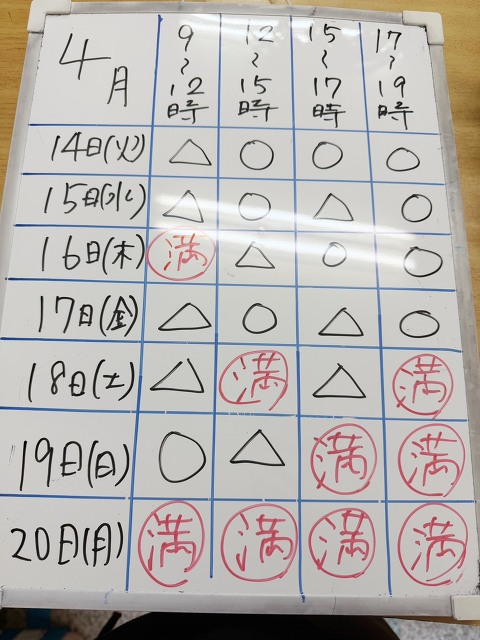 4月 9~12時 12~15時 15~17時 17~19時
14日(火) △ ○ ○ ○
15日(水) △ ○ △ ○
16日(木) 満 △ ○ ○
17日(金) △ ○ △ ○
18日(土) △ 満 △ 満
19日(日) ○ △ 満 満
20日(月) 満 満 満 満